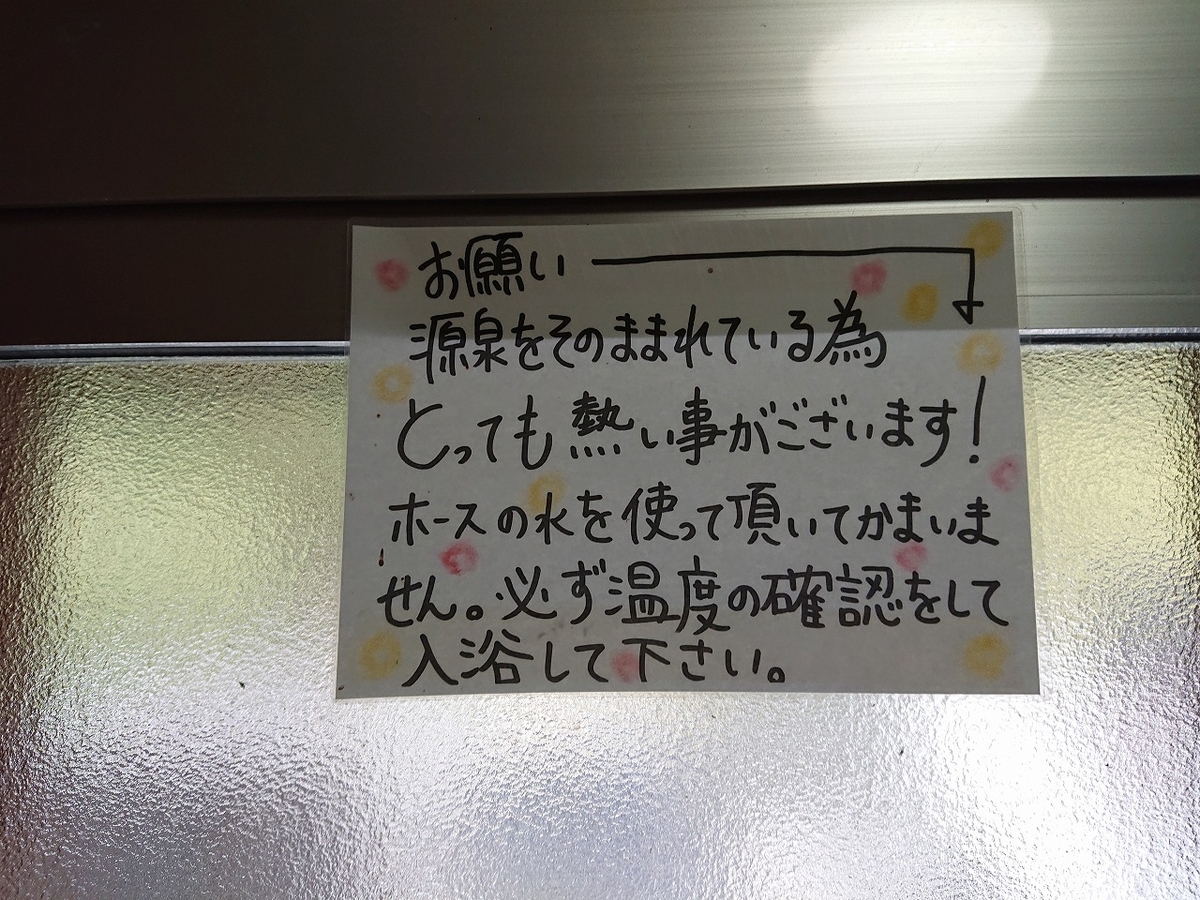 お願い
源泉をそのままれている為
とっても熱い事がございます!
ホースの水を使って頂いてかまいま
せん。必ず温度の確認をして
入浴して下さい。